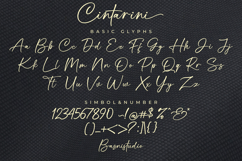 Cintarini
BASIC GLYPHS
Aa Bb Cc Dd Ee Ff Gg Hh Ii Jj
Kk Ll Mm Nn Oo Pp Qq Rr Ss
Tt Uu Vv Ww Xx Yy Zz
SIMBOL&NUMBER
1234567890
Brasnistudio